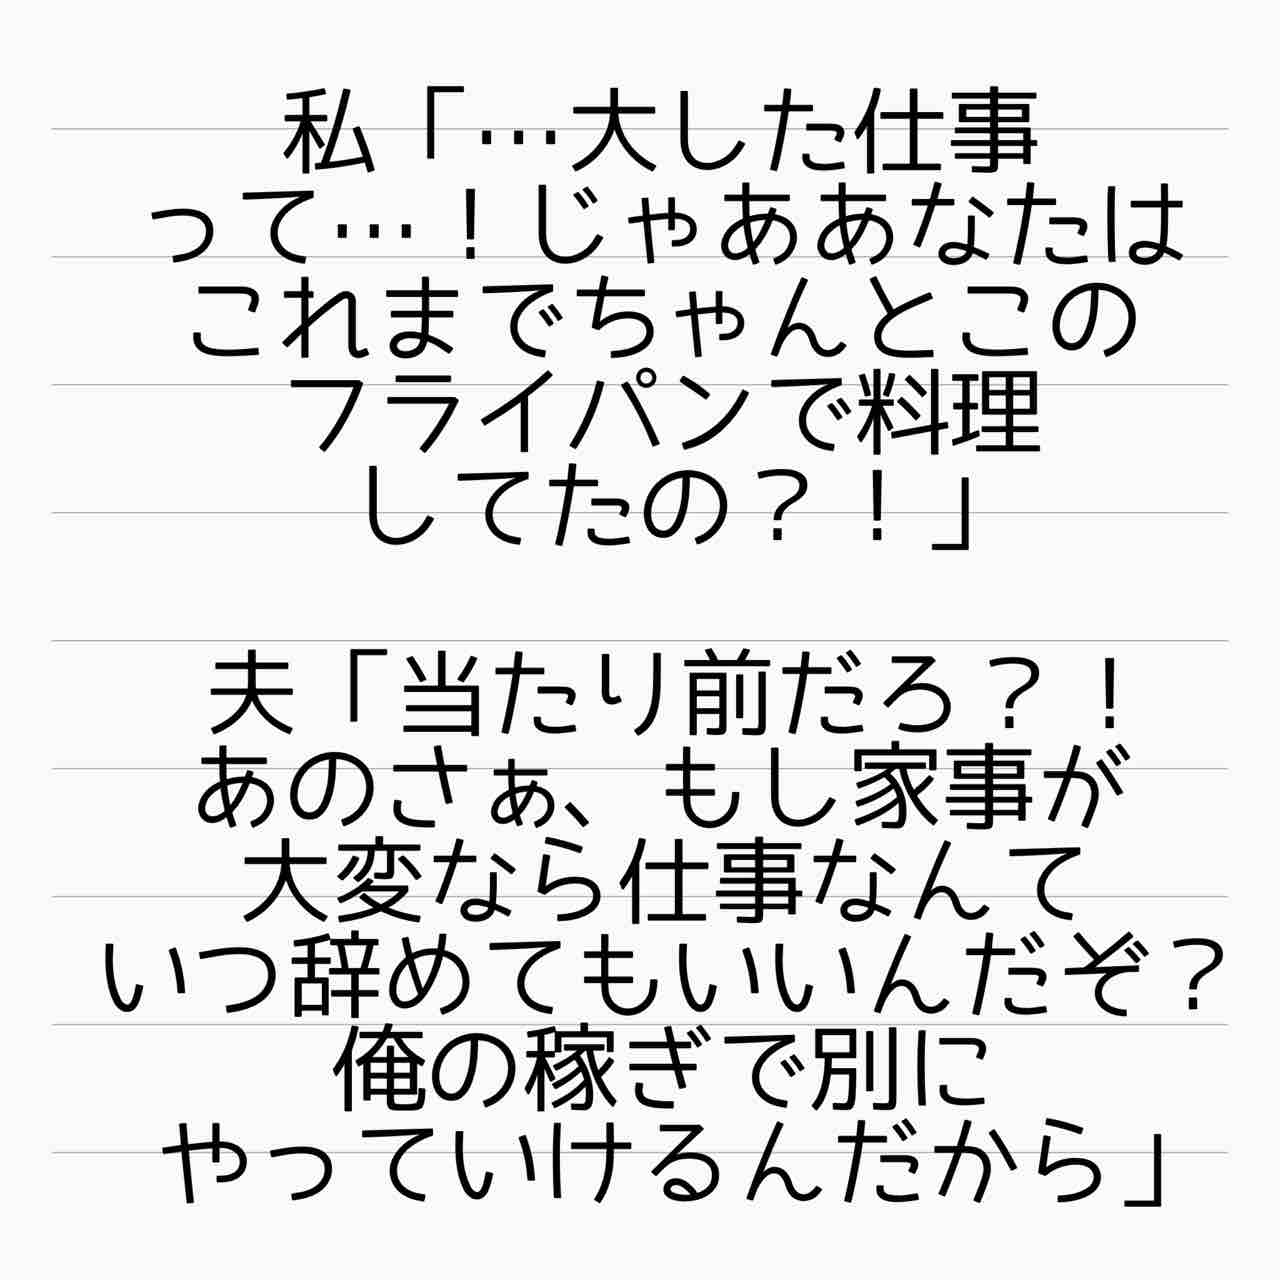 私「…大した仕事
って…！じゃああなたは
これまでちゃんとこの
フライパンで料理
してたの？！」
夫「当たり前だろ？！
あのさぁ、もし家事が
大変なら仕事なんて
いつ辞めてもいいんだぞ？
俺の稼ぎで別に
やっていけるんだから」